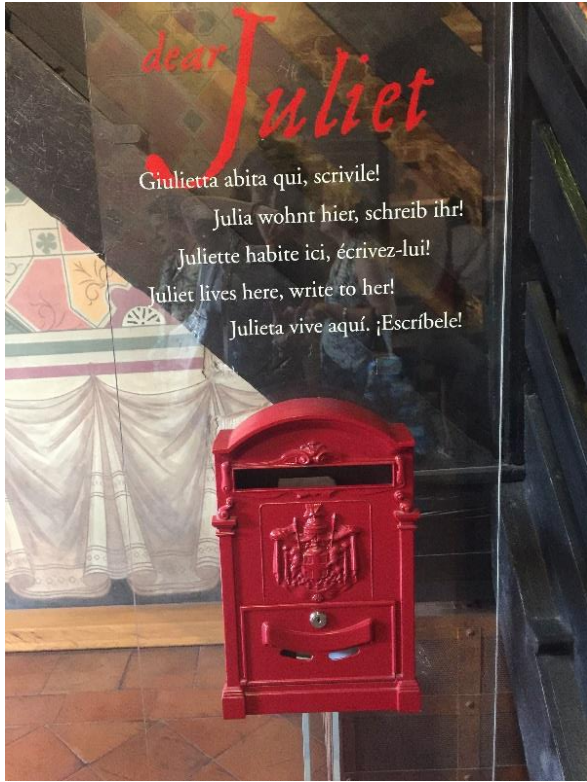 dear
Juliet
Giulietta abita qui, scrivile!
Julia wohnt hier, schreib ihr!
Juliette habite ici, écrivez-lui!
Juliet lives here, write to her!
Julieta vive aquí. ¡Escríbele!